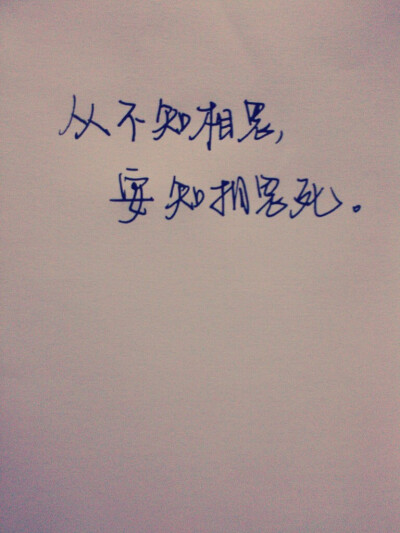 从不知相思，
安知相思死。